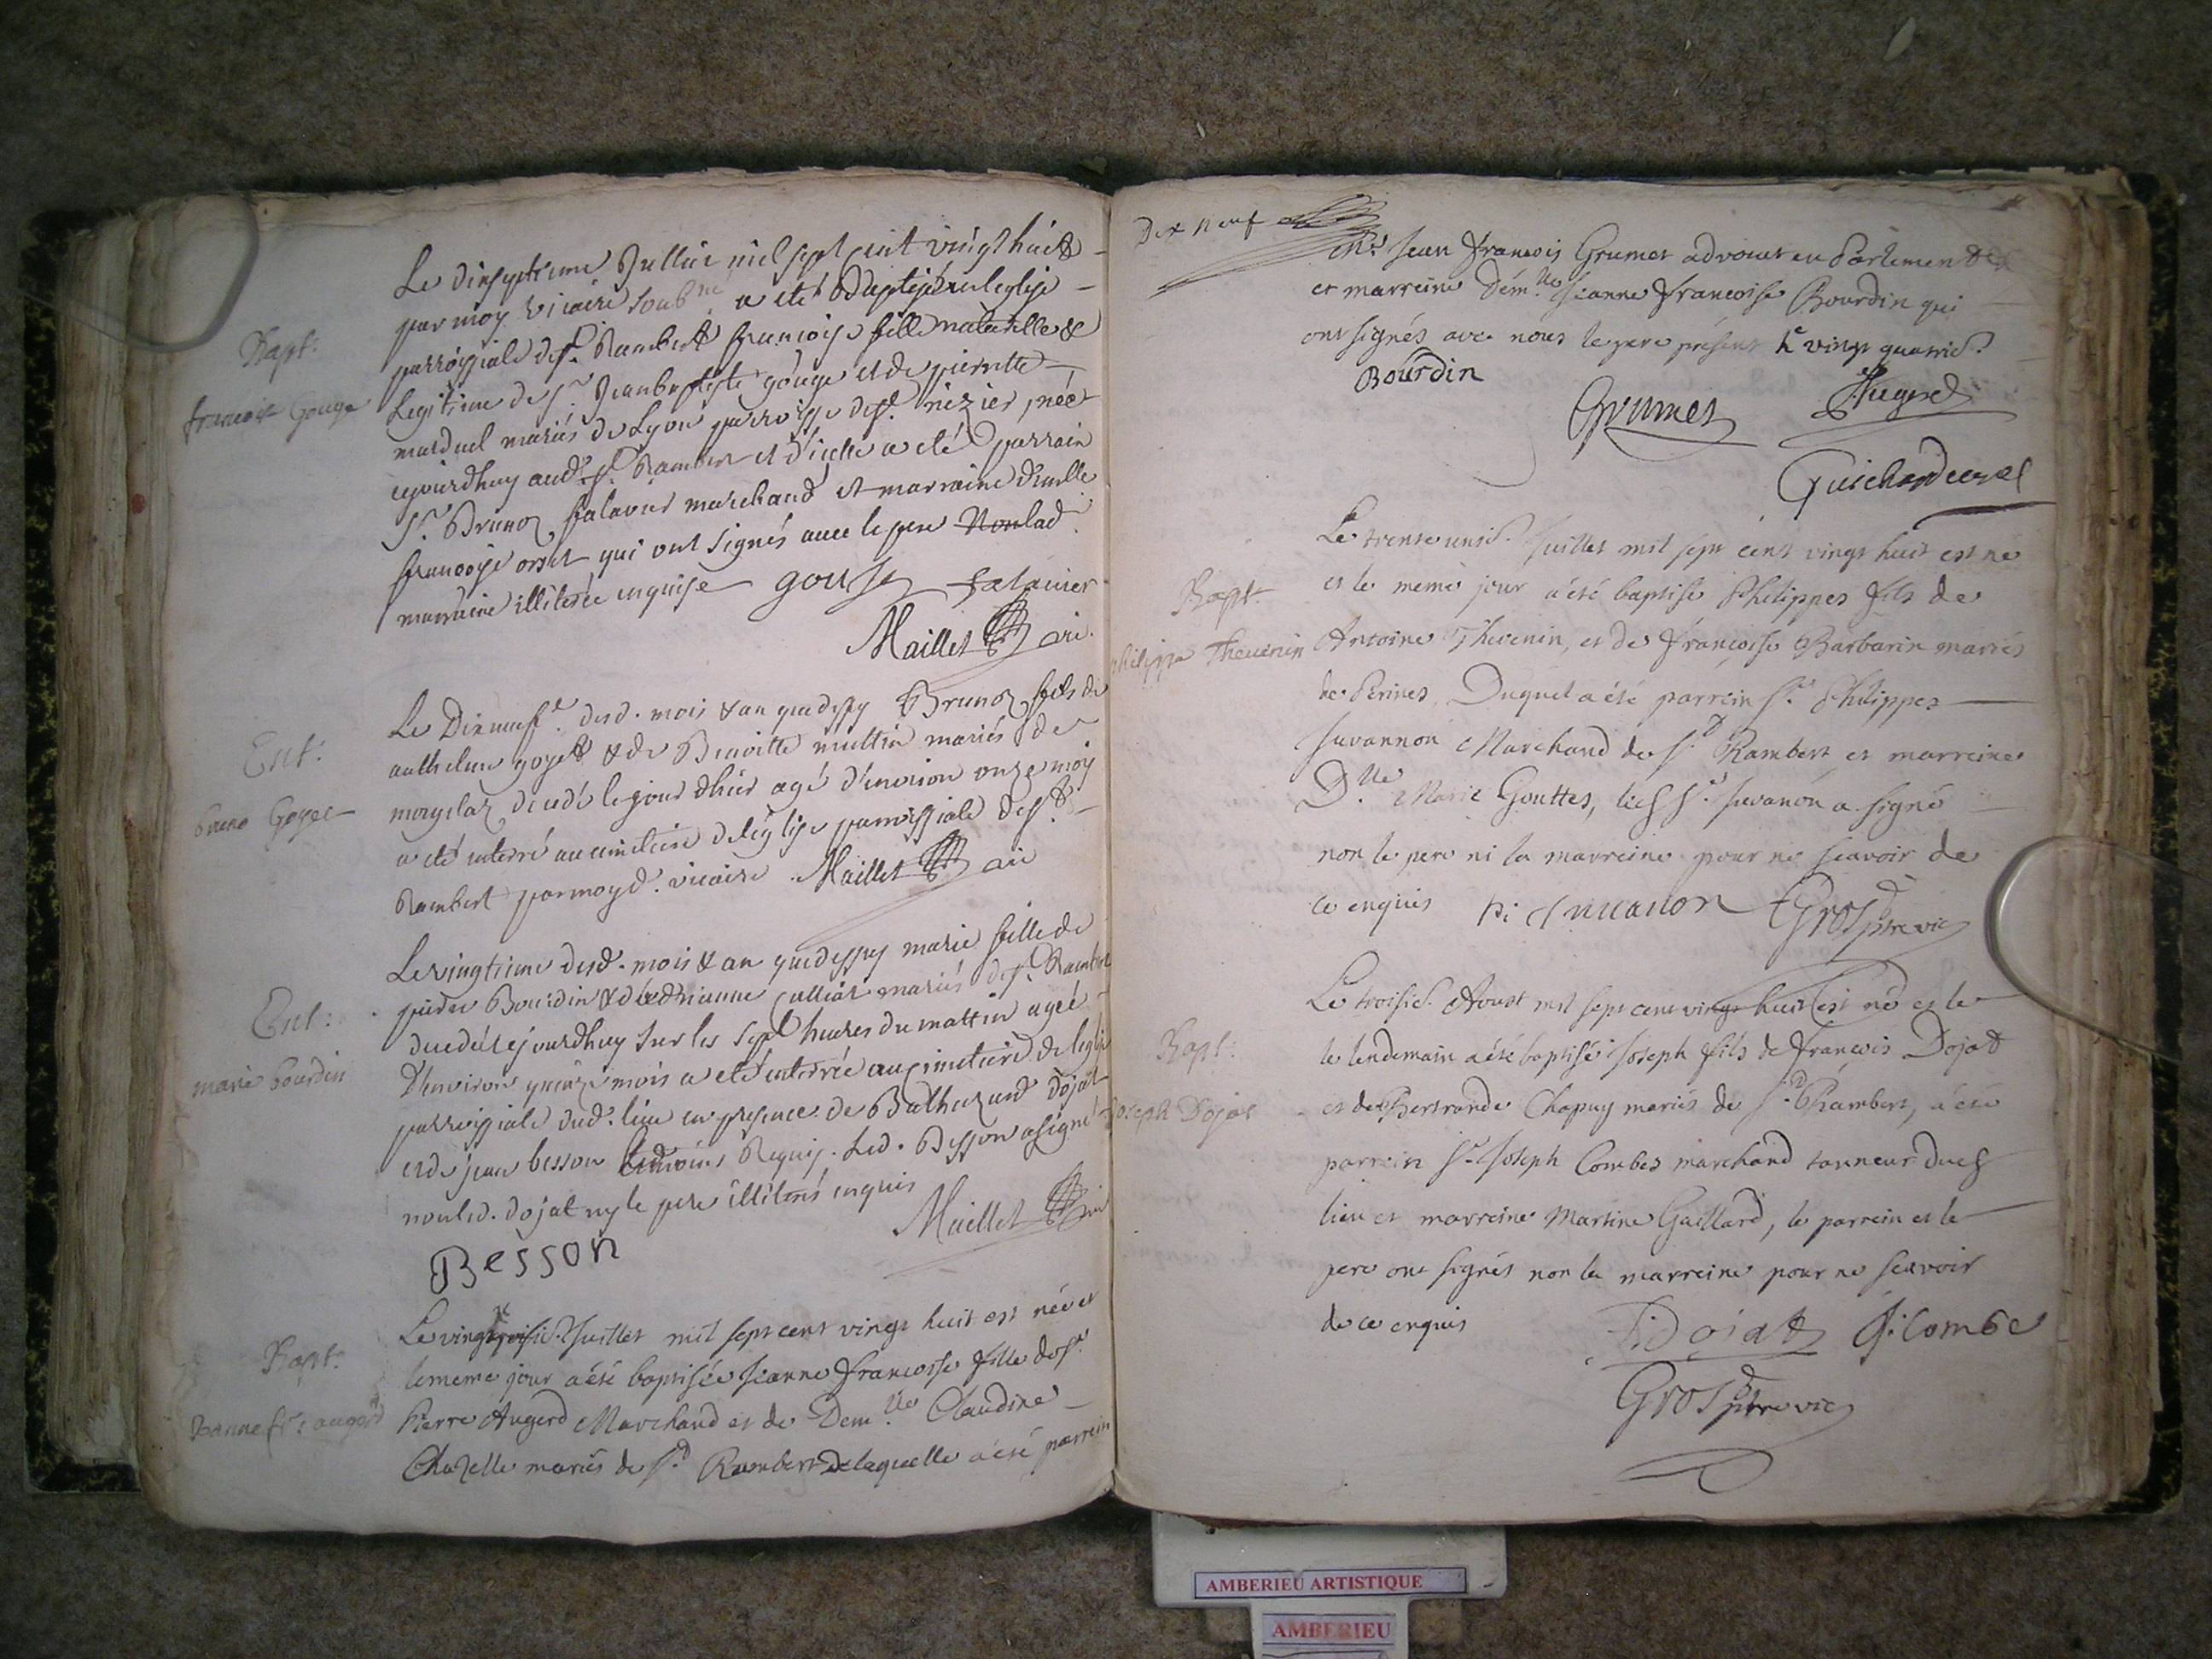 Bapt:
francoise Gouge
Le dixseptieme Julliet mil sept cent vingt huict
par moy vicaire soubne a eté Baptisée en leglise
parroissiale de st. Rambert francoise fille naturelle &
legitime de sr. Jeanbaptiste gouge et de pierrette
marduel mariés de Lyon parroisse de st. nizier, née
cejourdhuy aud. st. Rambert et d'icelle a eté parrain
sr. Brunoz falavier marchand et marraine dmlle
francoise orset qui ont signés avec le pere Non lad.
marraine illiterée enquise gouge falavier
Maillet vic.
Ent:
bruno Goyet
Le Dixneufe. desd. mois & an que dessus Brunoz fils de
anthelme goyet & de Benoitte mariés de
decedé le jour d'hier agé d'environ onze mois
a eté enterré au cimetiere de leglise parroissiale de st.
Rambert par moy d. vicaire Maillet vic
Ent:
marie bourdin
Le vingtieme desd. mois & an que dessus marie fille de
Bourdin & de mariés de st. Rambert
decedée cejourdhuy sur les sept heures du mattin agée
d'environ quinze mois a eté enterrée au cimetiere de leglise
parroissiale dud. lieu en presence de Balthazard dojat
et de jean besson temoins Requis. Led. Besson a signé
non led. dojat ny le pere illiterés enquis
Maillet vic
Besson
Bapt:
Jeanne fr: augerd
Le vingt Juillet mil sept cent vingt huit est née et
le meme jour a été baptisée Jeanne francoise fille de sr.
Pierre Augerd Marchand et de Demlle Claudine
Chazelle mariés de st. Rambert de laquelle a été parrein
Dix neuf
Mr. Jean francois Grumet advocat en Parlement
et marreine Demlle Jeanne francoise Bourdin qui
ont signés avec nous le pere présent le vingt quatrie.
Bourdin
Grumet Augerd
Guichard curé
Bapt.
philippe Thevenin
Le trente unie. Juillet mil sept cent vingt huit est né
et le meme jour a été baptisé Philippes fils de
Antoine Thevenin, et de francoise Barbarin mariés
de Perines, Duquel a été parrein sr. Philippes
Juvannon Marchand de st. Rambert et marreine
Dlle Marie Gouttes, led sr. Juvanon a signé
non le pere ni la marreine pour ne scavoir de
ce enquis Ph Juvanon Gros ptre vic
Bapt:
Joseph Dojat
Le troisie. Aoust mil sept cent vingt huit est né et le
le lendemain a été baptisé Joseph fils de francois Dojat
et de Bertrande Chapuy mariés de st. Rambert, a été
parrein sr. Joseph Combes marchand tanneur dud
lieu et marreine Martine Gaillard, le parrein et le
pere ont signés non la marreine pour ne scavoir
de ce enquis
f: Dojat J: Combe
Gros ptre vic
AMBERIEU ARTISTIQUE
AMBERIEU